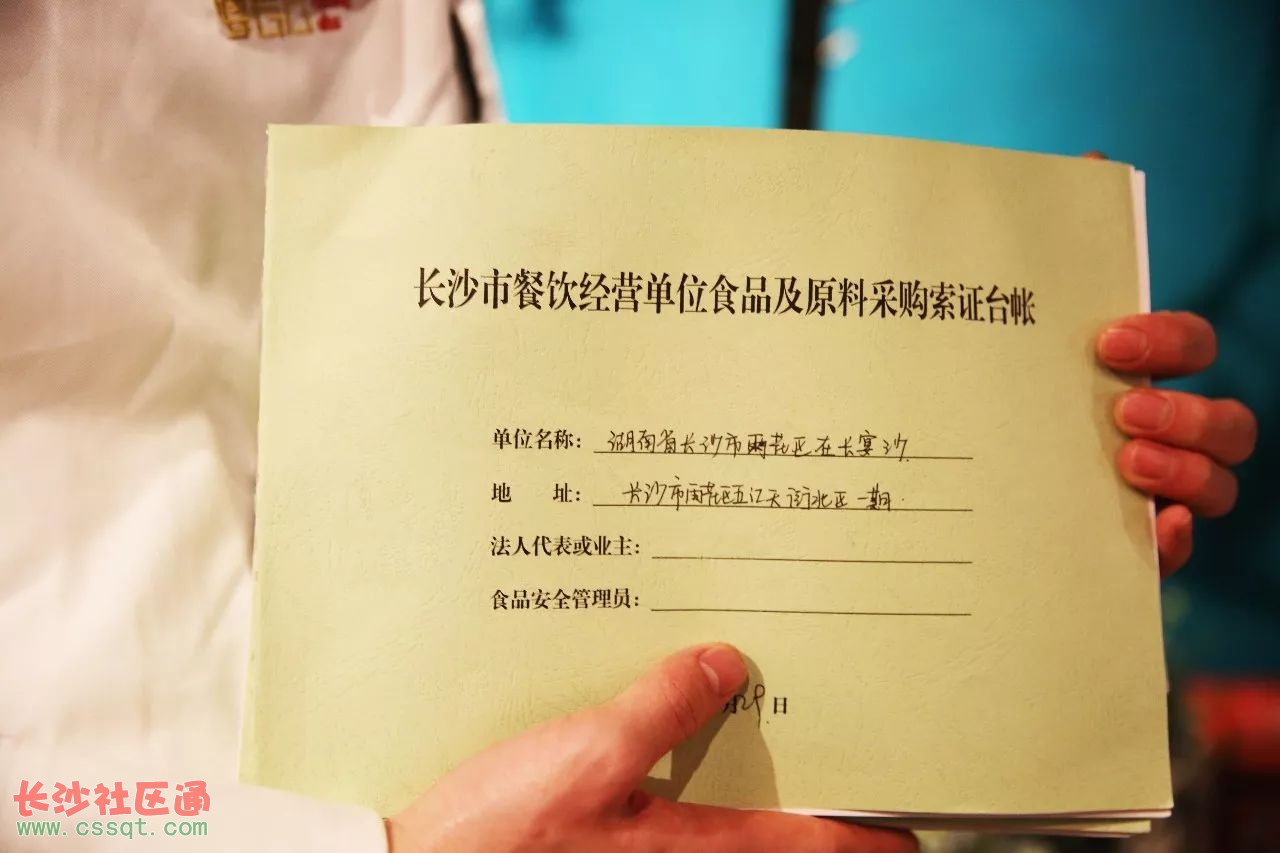 长沙市餐饮经营单位食品及原料采购索证台帐
单位名称：湖南省长沙市雨花区在长宴沙
地 址：长沙市雨花区五江天街北区一期.
法人代表或业主：
食品安全管理员：
月29日
长沙社区通
www.cssqt.com